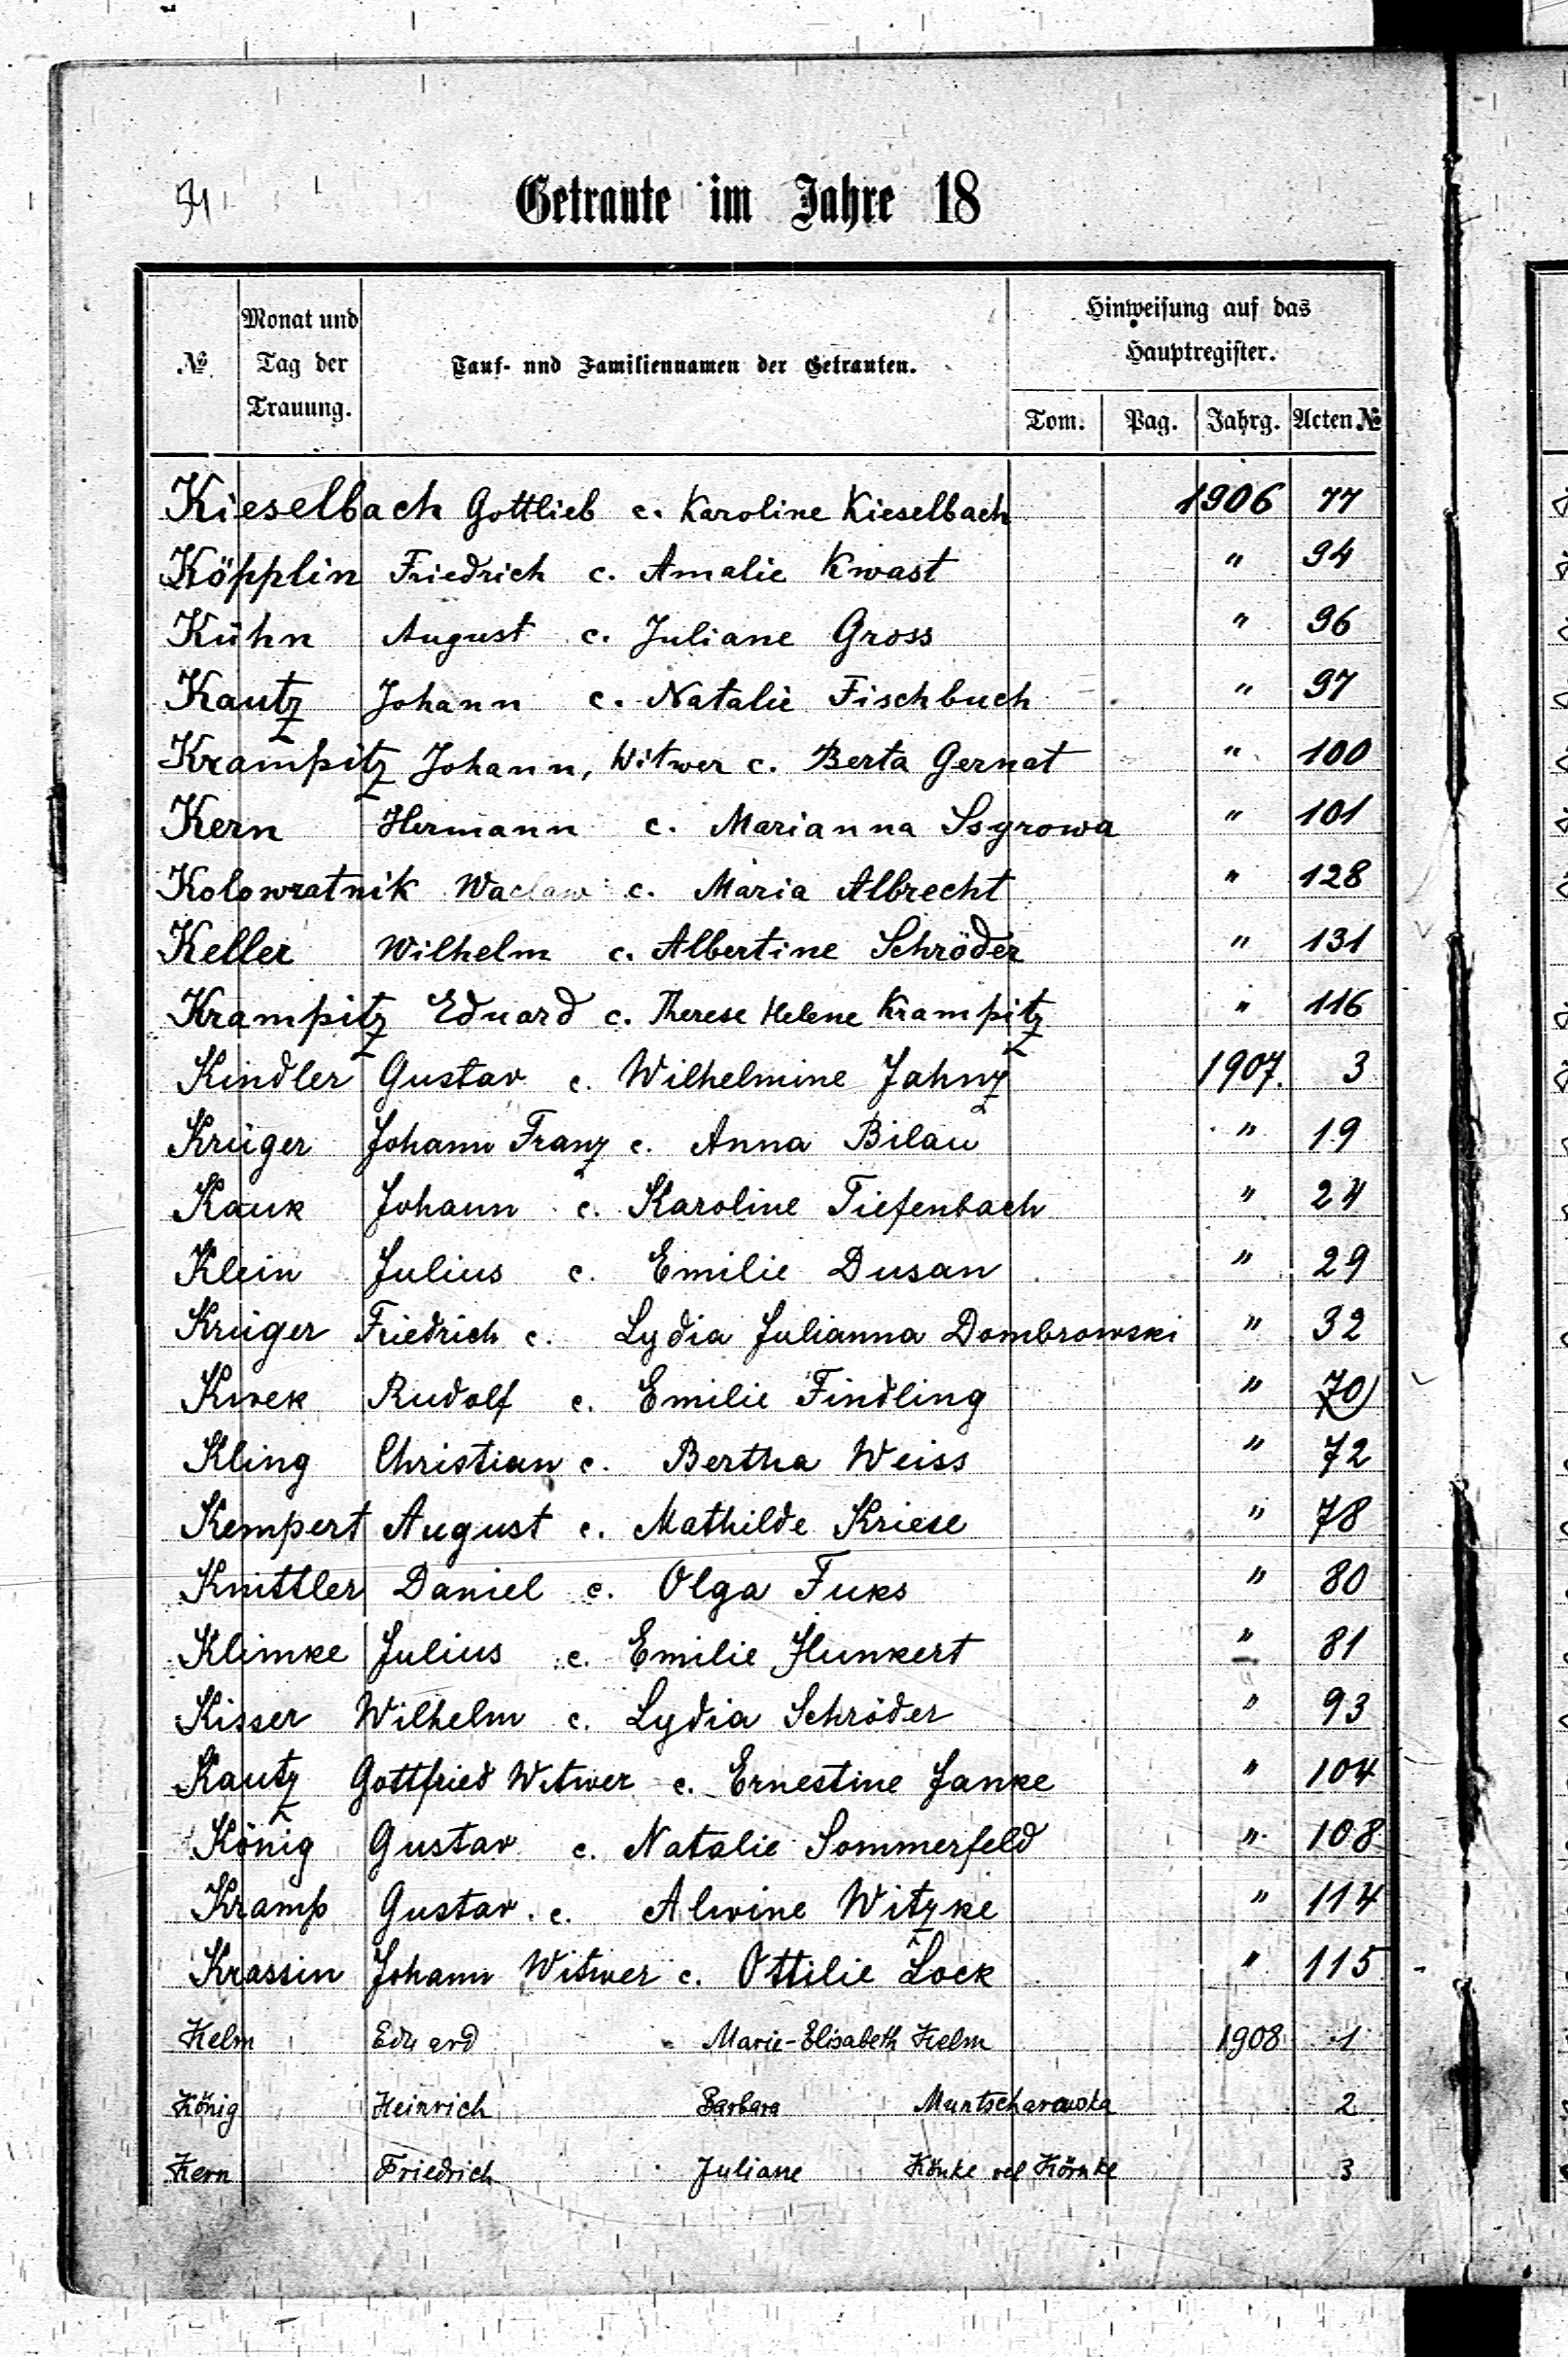 54
Getraute im Jahre 18
№
Monat und Tag der Trauung.
Tauf- und Familiennamen der Getrauten.
Hinweisung auf das Hauptregister.
Tom. Pag. Jahrg. Acten №
Kieselbach Gottlieb c. Karoline Kieselbach 1906 77
Köpplin Friedrich c. Amalie Kwast " 94
Kühn August c. Juliane Gross " 96
Kautz Johann c. Natalie Fischbuch " 97
Krampitz Johann, Witwer c. Berta Gernat " 100
Kern Hermann c. Marianna Ssyrowa " 101
Kolowratnik Waclaw c. Maria Albrecht " 128
Keller Wilhelm c. Albertine Schröder " 131
Krampitz Eduard c. Therese Helene Krampitz " 116
Kindler Gustav c. Wilhelmine Jahnz 1907. 3
Krüger Johann Franz c. Anna Bilau " 19
Kauk Johann c. Karoline Tiefenbach " 24
Klein Julius c. Emilie Dusan " 29
Krüger Friedrich c. Lydia Julianna Dombrowski " 32
Kwek Rudolf c. Emilie Findling " 70
Kling Christian c. Bertha Weiss " 72
Kempert August c. Mathilde Kriese " 78
Knittler Daniel c. Olga Fuks " 80
Klimke Julius c. Emilie Hunkert " 81
Kisser Wilhelm c. Lydia Schröder " 93
Kautz Gottfried Witwer c. Ernestine Janke " 104
König Gustav c. Natalie Sommerfeld " 108
Kramp Gustav c. Alwine Witzke " 114
Krassin Johann Witwer c. Ottilie Lock " 115
Kelm Eduard Marie-Elisabeth Kelm 1908 1
König Heinrich Barbara Muntscharowska 2
Kern Friedrich Juliane Könke vel Körnke 3